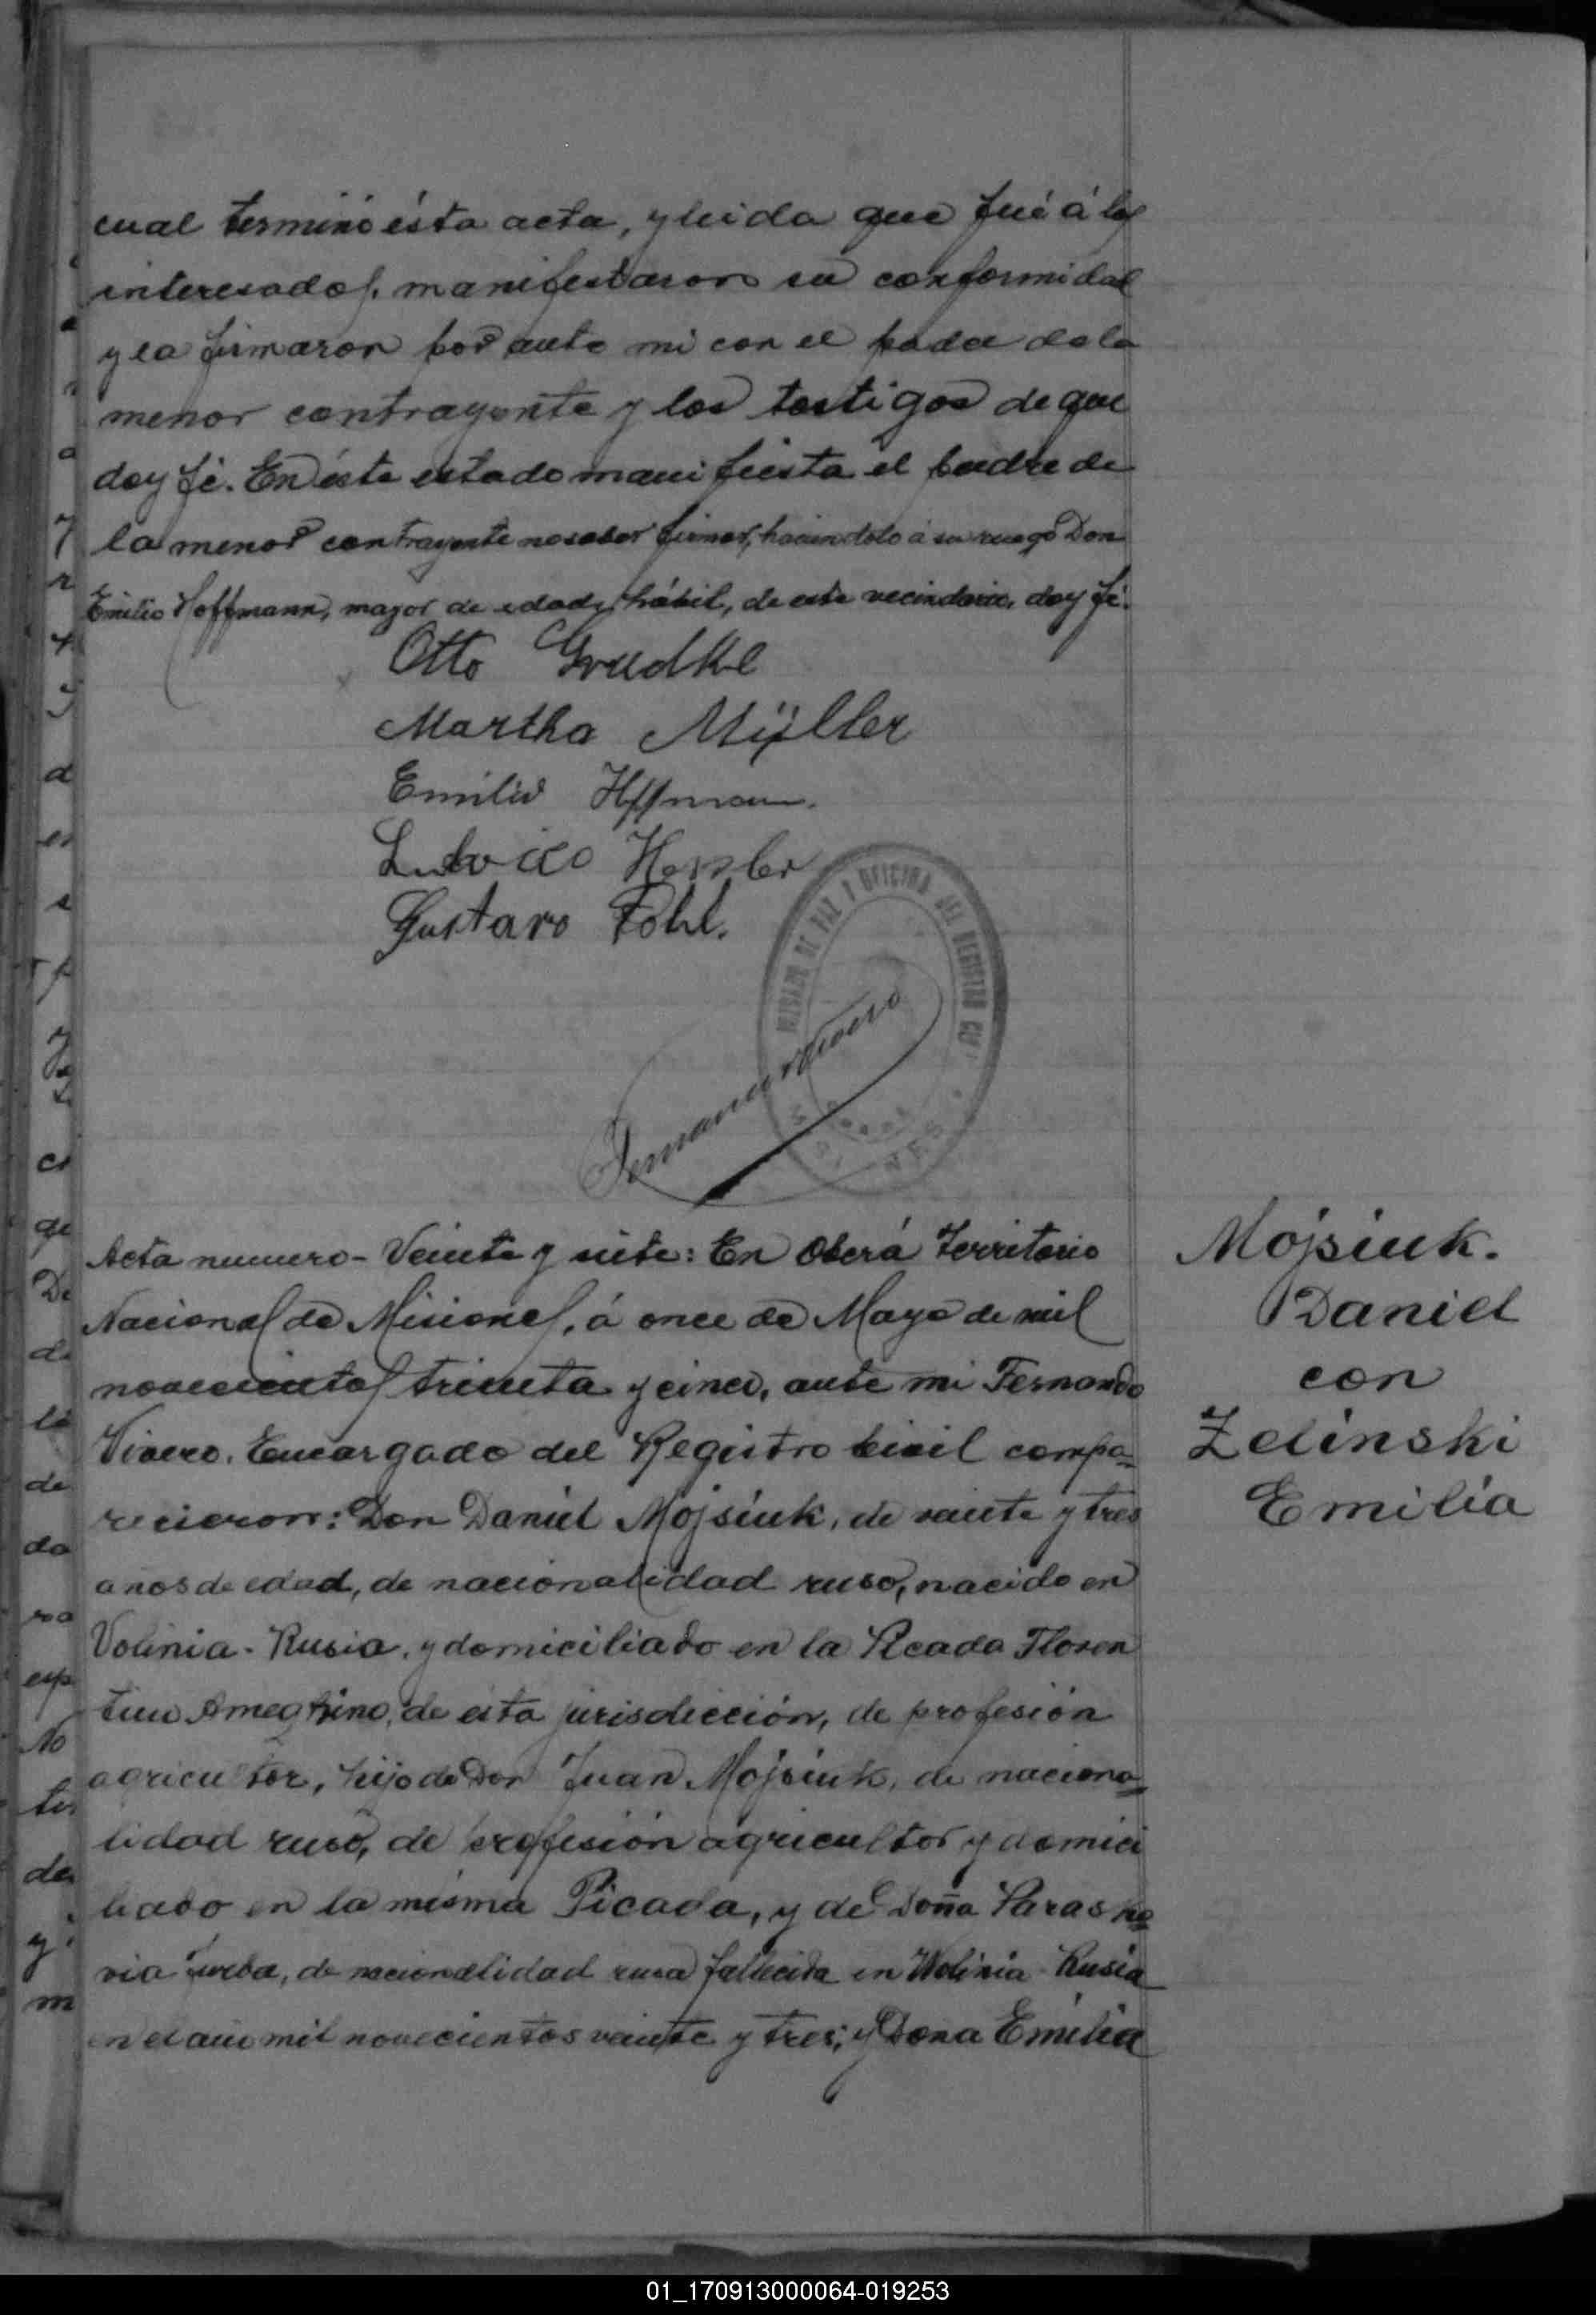 cual terminó ésta acta, y leida que fué á los
interesados, manifestaron su conformidad
y la firmaron por ante mi con el padre de la
menor contrayente y los testigos de que
doy fé. En éste estado manifiesta el padre de
la menor contrayente no saber firmar, haciendolo á su ruego Don
Emilio Hoffmann, mayor de edad y hábil, de este vecindario, doy fé.
Otto Grudke
Martha Müller
Emilio Hffmann.
Gustavo Pohl.
DE PAZ Y OFICINA DEL REGISTRO
Acta numero - Veinte y siete: En Oberá Territorio
Nacional de Misiones, á once de Mayo de mil
novecientos treinta y cinco, ante mi Fernando
Vivero, Encargado del Registro Civil compa=
recieron: Don Daniel Mojsiuk, de veinte y tres
años de edad, de nacionalidad ruso, nacido en
Volinia - Rusia, y domiciliado en la Picada Floren
tino Ameghino, de ésta jurisdicción, de profesión
agricultor, hijo de Don Juan Mojsiuk, de naciona=
lidad ruso, de profesión agricultor y domici
liado en la misma Picada, y de Doña Parasko=
via de nacionalidad rusa fallecida en Wolinia - Rusia
en el año mil novecientos veinte y tres; y Doña Emilia
Mojsiuk.
Daniel
con
Zelinski
Emilia
01_170913000064-019253